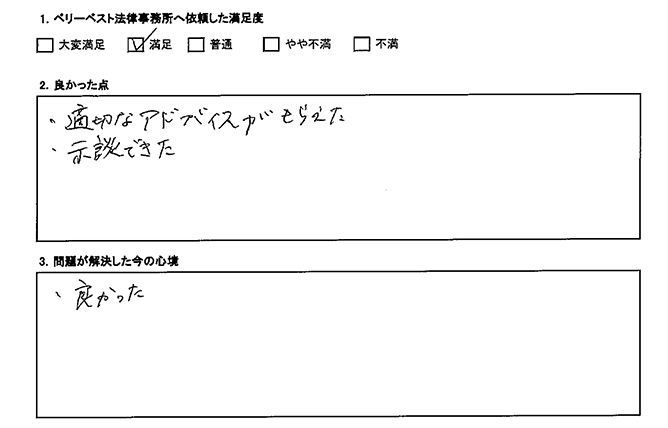 1. ベリーベスト法律事務所へ依頼した満足度
□ 大変満足 ☑ 満足 □ 普通 □ やや不満 □ 不満
2. 良かった点
・適切なアドバイスがもらえた
・示談できた
3. 問題が解決した今の心境
・良かった